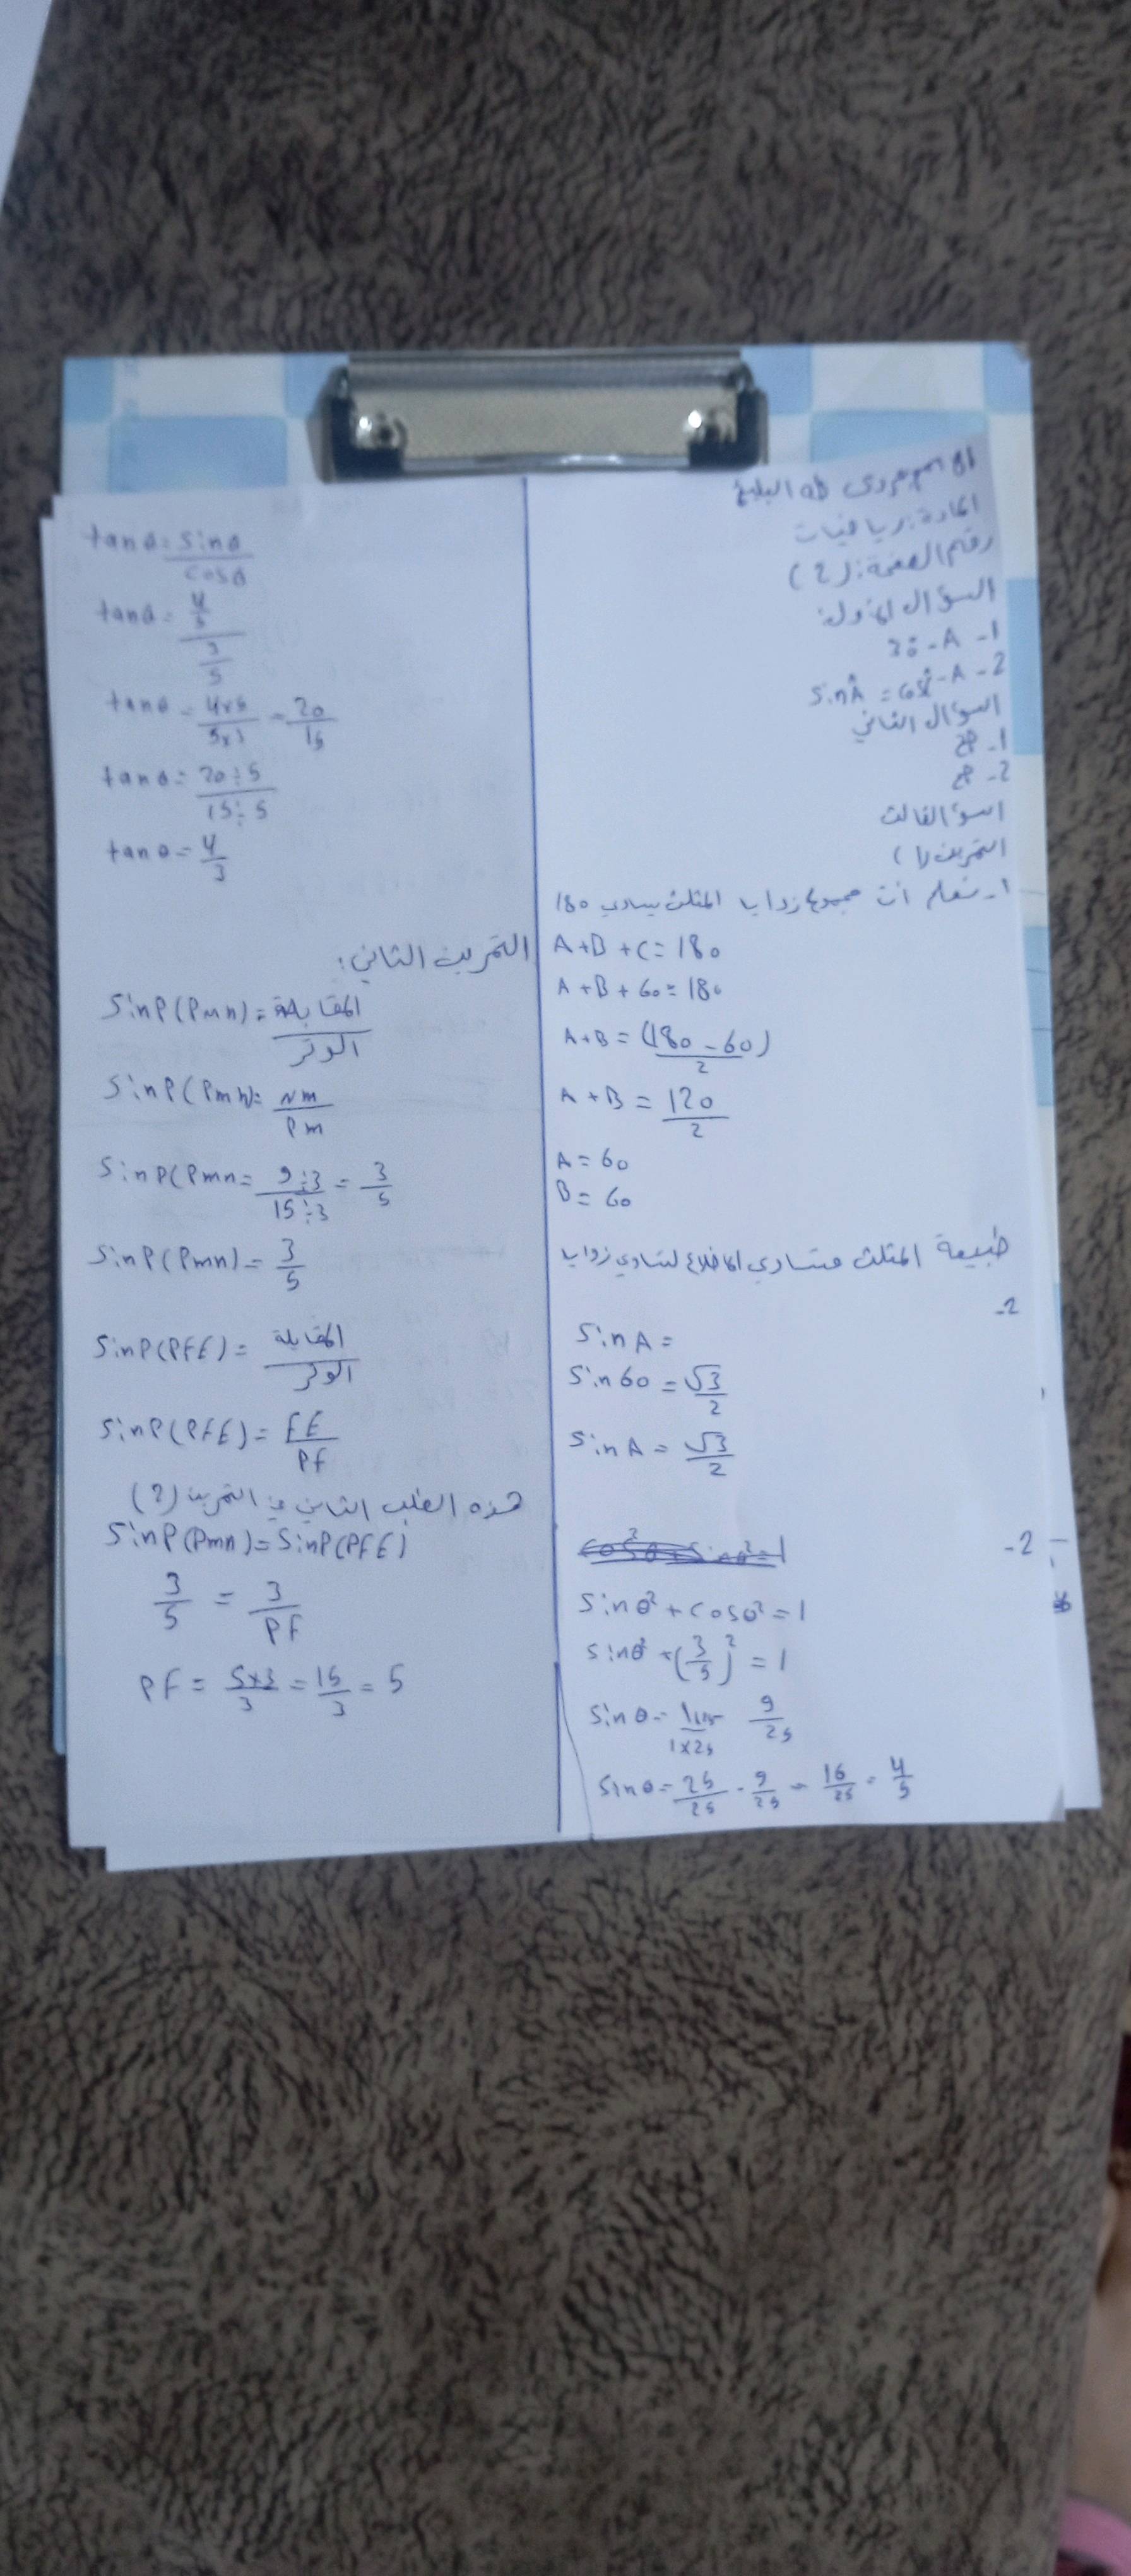 المادة: رياضيات
رقم الصفحة: (2)
السؤال الأول:
1- A- 30
2- A- sinA = cosC
السؤال الثاني
1- صح
2- صح
السؤ الثالث
التمرين (1)
1- نعلم ان مجموع زوايا المثلث يساوي 180
A+B+C=180
A+B+60=180
A+B=(180-60)/2
A+B=120/2
A=60
B=60
طبيعة المثلث متساوي الاضلاع لتساوي زوايا
2-
sin A =
sin60=√3/2
sin A=√3/2
2-
sinθ²+cosθ²=1
sinθ²+(3/5)²=1
sinθ= 9/25
1×25
sinθ=25/25-9/25=16/25=4/5
tanθ=sinθ/cosθ
tanθ=4/5/3/5
tanθ=4×5/5×3=20/15
tanθ=20÷5/15÷5
tanθ=4/3
التمرين الثاني:
SinP(Pmn)=المقابلة/الوتر
SinP(Pmn)=Nm/Pm
SinP(Pmn=9÷3/15÷3=3/5
SinP(Pmn)=3/5
SinP(PFE)=المقابلة/الوتر
SinP(PFE)=FE/PF
هذه الطلب الثاني في التمرين (2)
SinP(Pmn)=SinP(PFE)
3/5=3/PF
PF=5×3/3=15/3=5